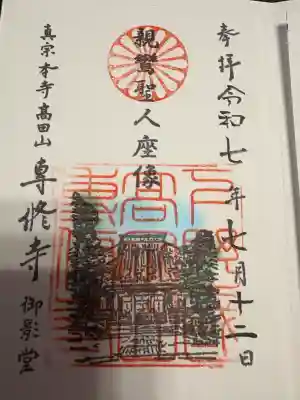 奉拝令和七年七月十二日
親鸞聖人座像
真宗本寺高田山専修寺御影堂